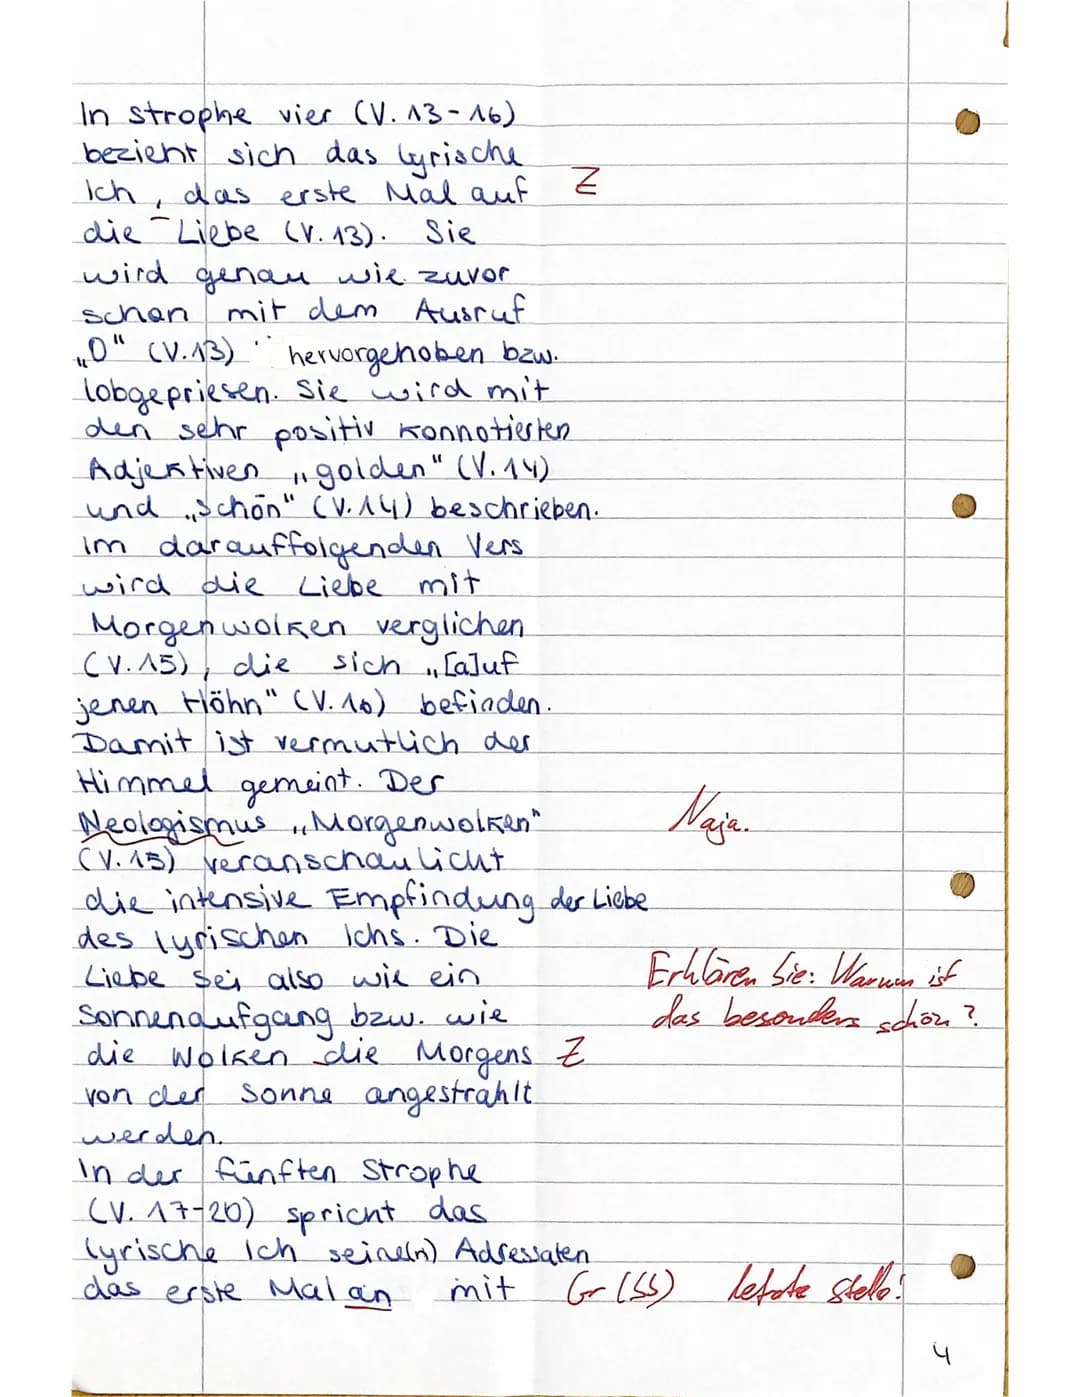 In strophe vier (V. 13-16)
bezieht sich das lyrische
Ich, das erste Mal auf Z
die Liebe (V. 13). Sie
wird genau wie zuvor
schon mit dem Ausruf
„O" (V.13) hervorgehoben bzw.
lobgepriesen. Sie wird mit
den sehr positiv konnotierten
Adjektiven „golden" (V. 14)
und „schön" (V. 14) beschrieben.
Im darauffolgenden Vers
wird die Liebe mit
Morgenwolken verglichen
(V. 15), die sich „[a]uf
jenen Höhn" (V. 16) befinden.
Damit ist vermutlich der
Himmel gemeint. Der
Neologismus „Morgenwolken" Naja.
(V. 15) veranschaulicht
die intensive Empfindung der Liebe
des lyrischen Ichs. Die
Liebe sei also wie ein Erklären Sie: Warum ist
Sonnenaufgang bzw. wie das besonders schön?
die Wolken die Morgens Z
von der Sonne angestrahlt
werden.
In der fünften Strophe
(V. 17-20) spricht das
lyrische Ich seine(n) Adressaten
das erste Mal an mit Gr (SS) letzte Stelle!
4